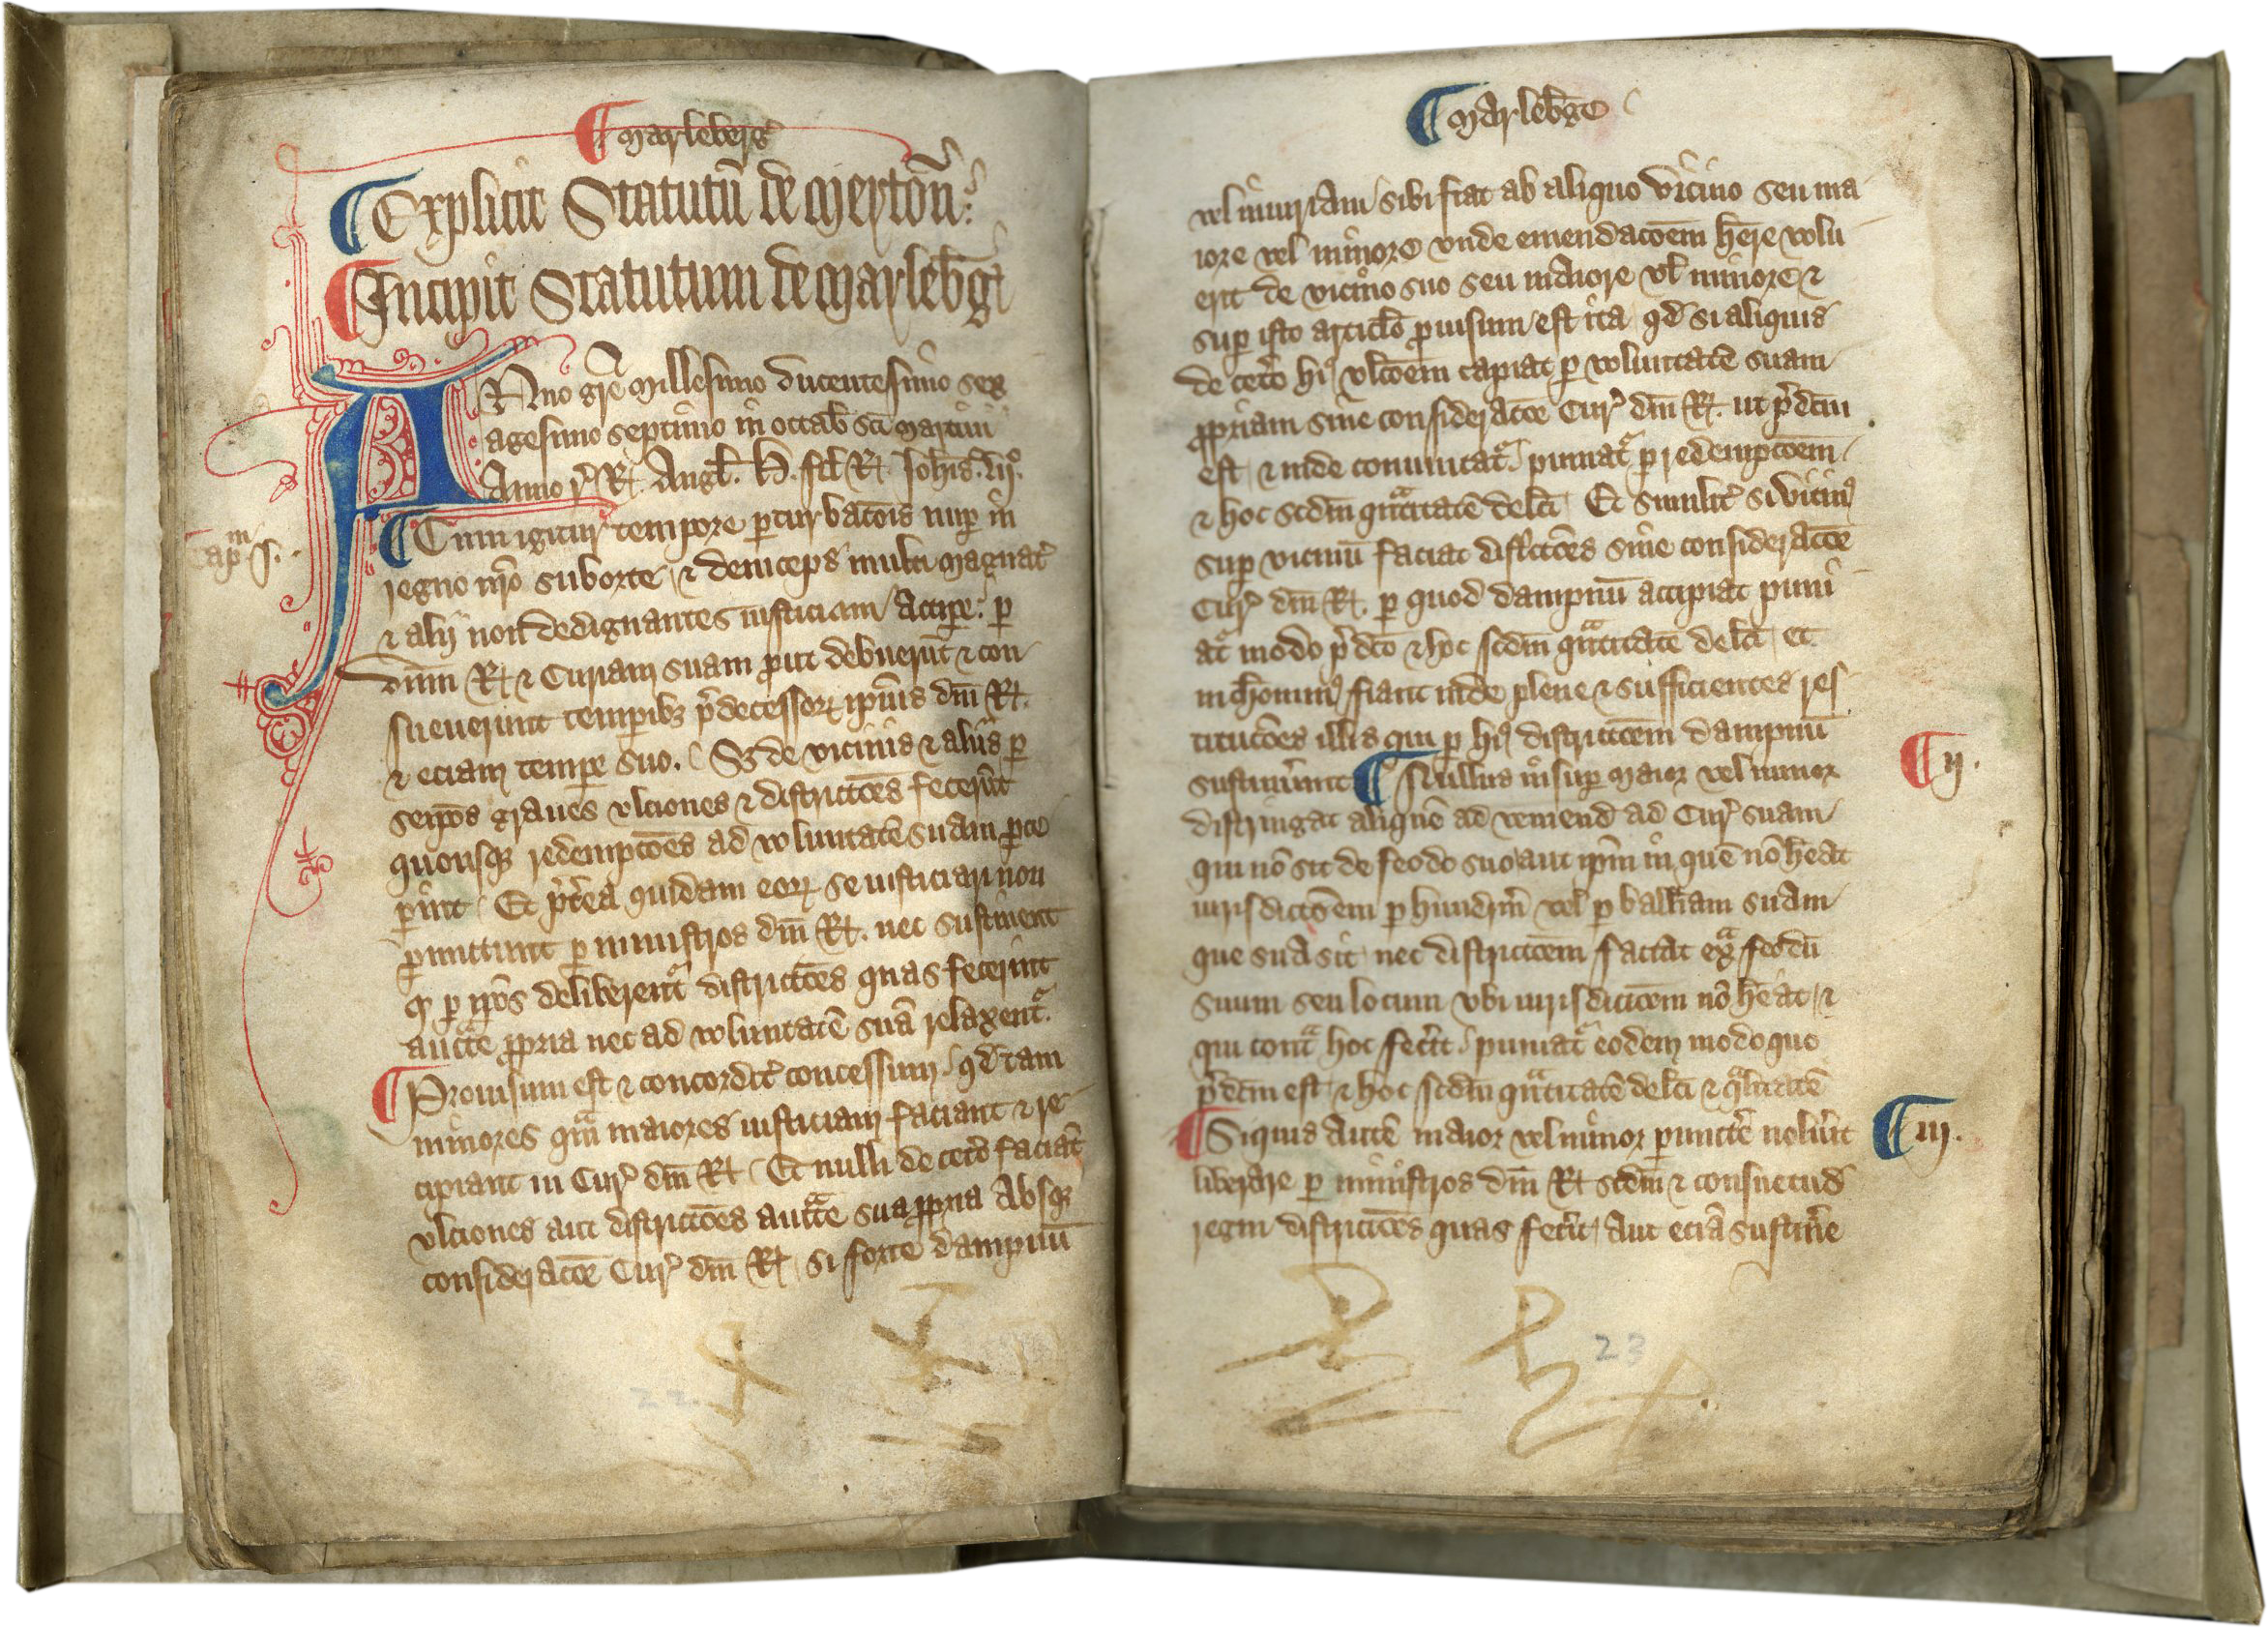 ¶ Marleberg̕
¶ Explicit Statutū de Mertōn :
¶ Incipit Statutum de Marleb̄g̕
ANno gr̄e Millesimo ducentesimo sex
agesimo septimo in octab̄ sc̄i Martini
Anno r̕ R̕. Angl̄. H. fil̄ R̕. Ioh̄is. lijº.
Cap^m. j.
¶ Cum igitur tempore ꝑturbac̄ois nuꝑ in
regno nr̄o suborte ⁊ deinceps multi magnat̕
⁊ alij non dedignantes iusticiam Accipe : ꝑ
dūm R̕ ⁊ Curiam suam ꝓut debuerūt ⁊ con
sueuerunt temꝑibꝫ p̄decessoꝝ ip̄ius dn̄i R̕.
⁊ eciam temꝑe suo. Sꝫ de vicinis ⁊ aliis ꝑ
seip̄os graues vlciones ⁊ districc̄oes fecerūt
quousqꝫ redempc̄oes ad voluntatē suam ꝑce
ꝑint Et p̄t̕ea quidam eoꝝ se iusticiari non
ꝑmittunt ꝑ ministros dn̄i R̕. nec sustinent
qd̕ ꝑ ip̄os deliberent̕ districc̄oes quas fecerint
auct̄te ꝓpria nec ad voluntatē suā relaxent̕.
¶ Prouisum est ⁊ concordit̕ concessum qd̕ tam
minores qm̄ maiores iusticiam faciant ⁊ re
cipiant in Cur̕ dn̄i R̕ Et nulli de cet̕o faciāt
vlciones aut districc̄oes auct̄te sua ꝓpria Absqꝫ
considerac̄oe Cur̕ dn̄i R̕ si forte dampnū
22
¶ Marleb̄ge
vel iniuriam sibi fiat ab aliquo vicino seu ma
iore vel minore vnde emendac̄oem h̄ere volu
erit de vicino suo seu maiore vl̄ minore ⁊
suꝑ isto articl̄o ꝓuisum est ita qd̕ si aliquis
de cet̕o hi⁹ vlc̄oem capiat ꝑ voluntatē suam
ꝓpriam sine considerac̄oe Cur̕ dn̄i R̕. ut p̄dc̄m
est ⁊ inde conuincat̕ puniat̕ ꝑ redempc̄oem
⁊ hoc scd̄m qn̄titatē delc̄i Et similit̕ si vicin⁹
suꝑ vicinū faciat dist̕cc̄oes sine considerac̄oe
Cur̕ dn̄i R̕. ꝑ quod dampnū accipiat puni
at̕ modo p̄dc̄o ⁊ hoc scd̄m qn̄titatē delc̄i Et
nichomin⁹ fiant inde plene ⁊ sufficientes res
tituc̄oes illis qui ꝑ hi⁹ districc̄oem dampnū
sustinūint ¶ Nullus insuꝑ maior vel minor
¶ ij.
distringat aliquē ad veniend̕ ad Cur̕ suam
qui nō sit de feodo suo aut ip̄m in quē nō h̄eat
iurisdicc̄oem ꝑ hundrm̄ vel ꝑ ball̄iam suam
que sua sit nec districc̄oem faciat ex^a feodū
suum seu locum vbi iurisdicc̄oem nō h̄eat ⁊
qui cont^a hoc fec̕it puniat̕ eodem modo quo
p̄dc̄m est ⁊ hoc scd̄m qn̄titatē delc̄i ⁊ q^alitatē
¶ Si quis autē maior vel minor ꝑmitt̕e nolūit
¶ iij.
liberare ꝑ ministros dn̄i R̕ scd̄m ⁊ consuetud̕
regni districc̄oes quas fec̕it Aut eciā sustin̄e
23